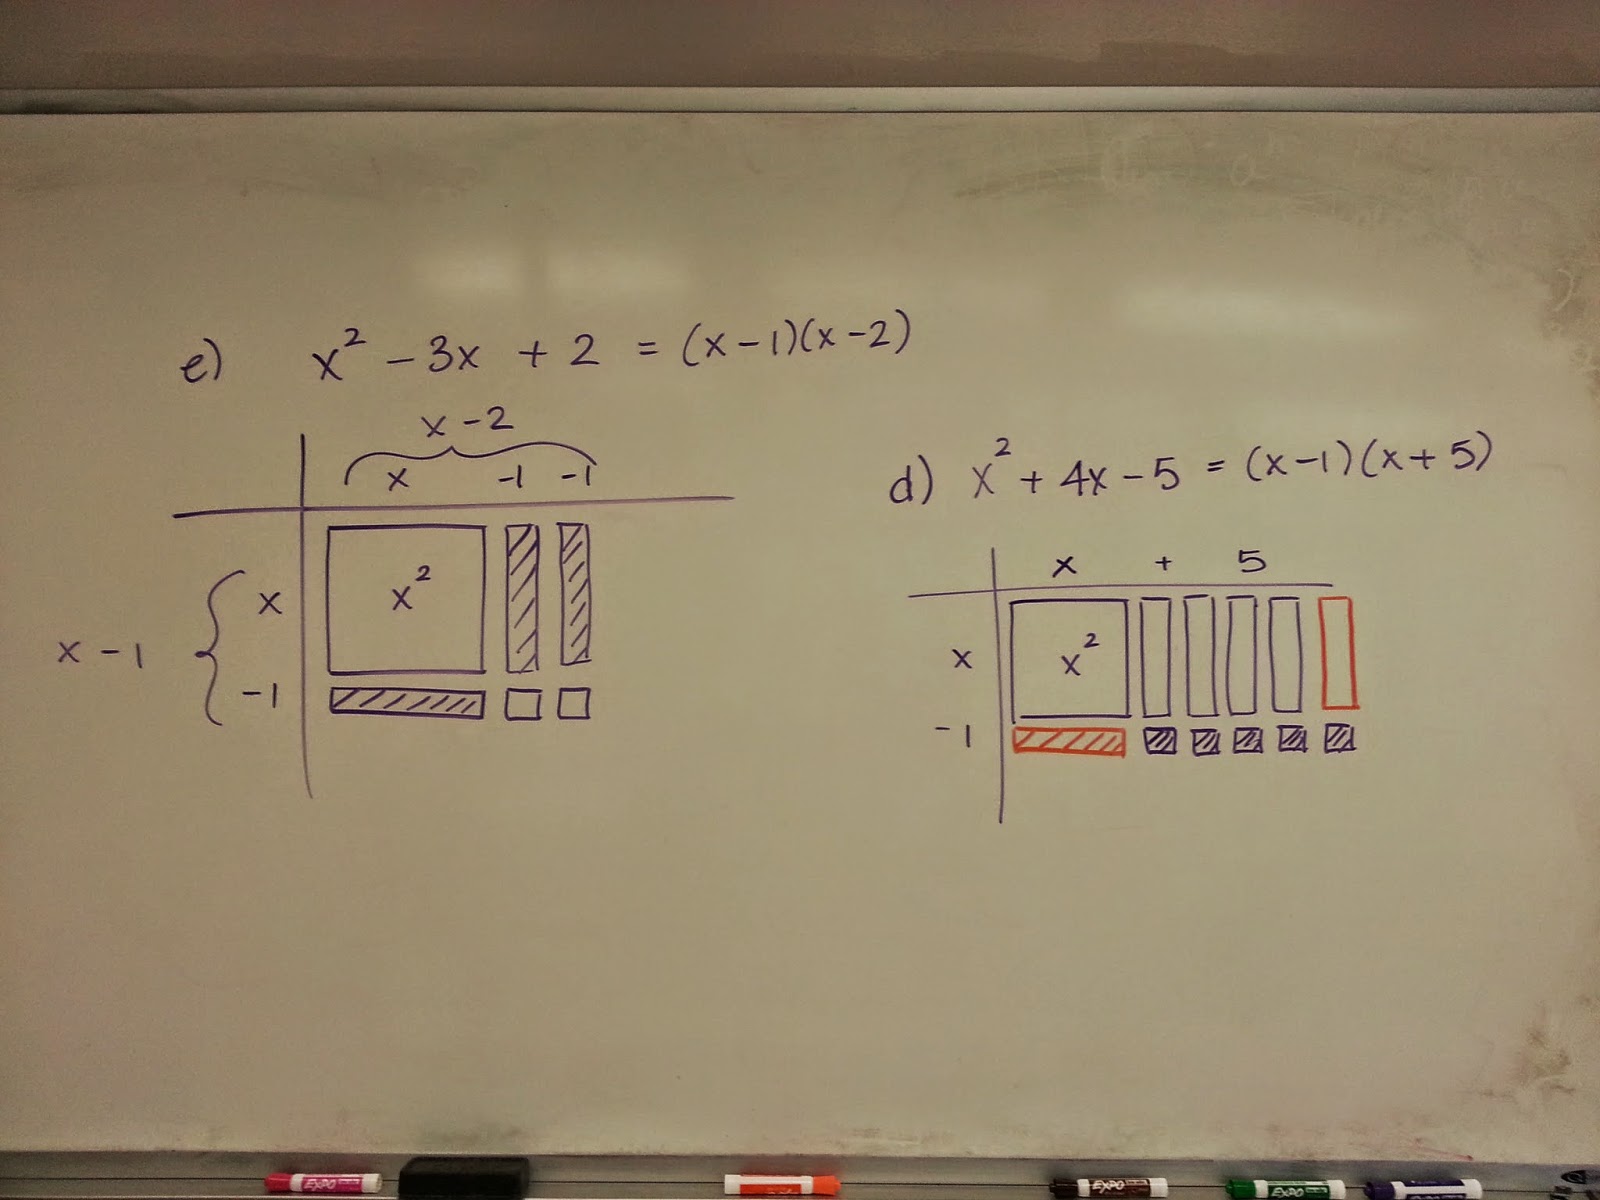 e) x² - 3x + 2 = (x-1)(x-2)
x - 2
x -1 -1
x
x²
x - 1
-1
d) x² + 4x - 5 = (x-1)(x+5)
x + 5
x
x²
-1
EXPO
EXPO
EXPO
EXPO